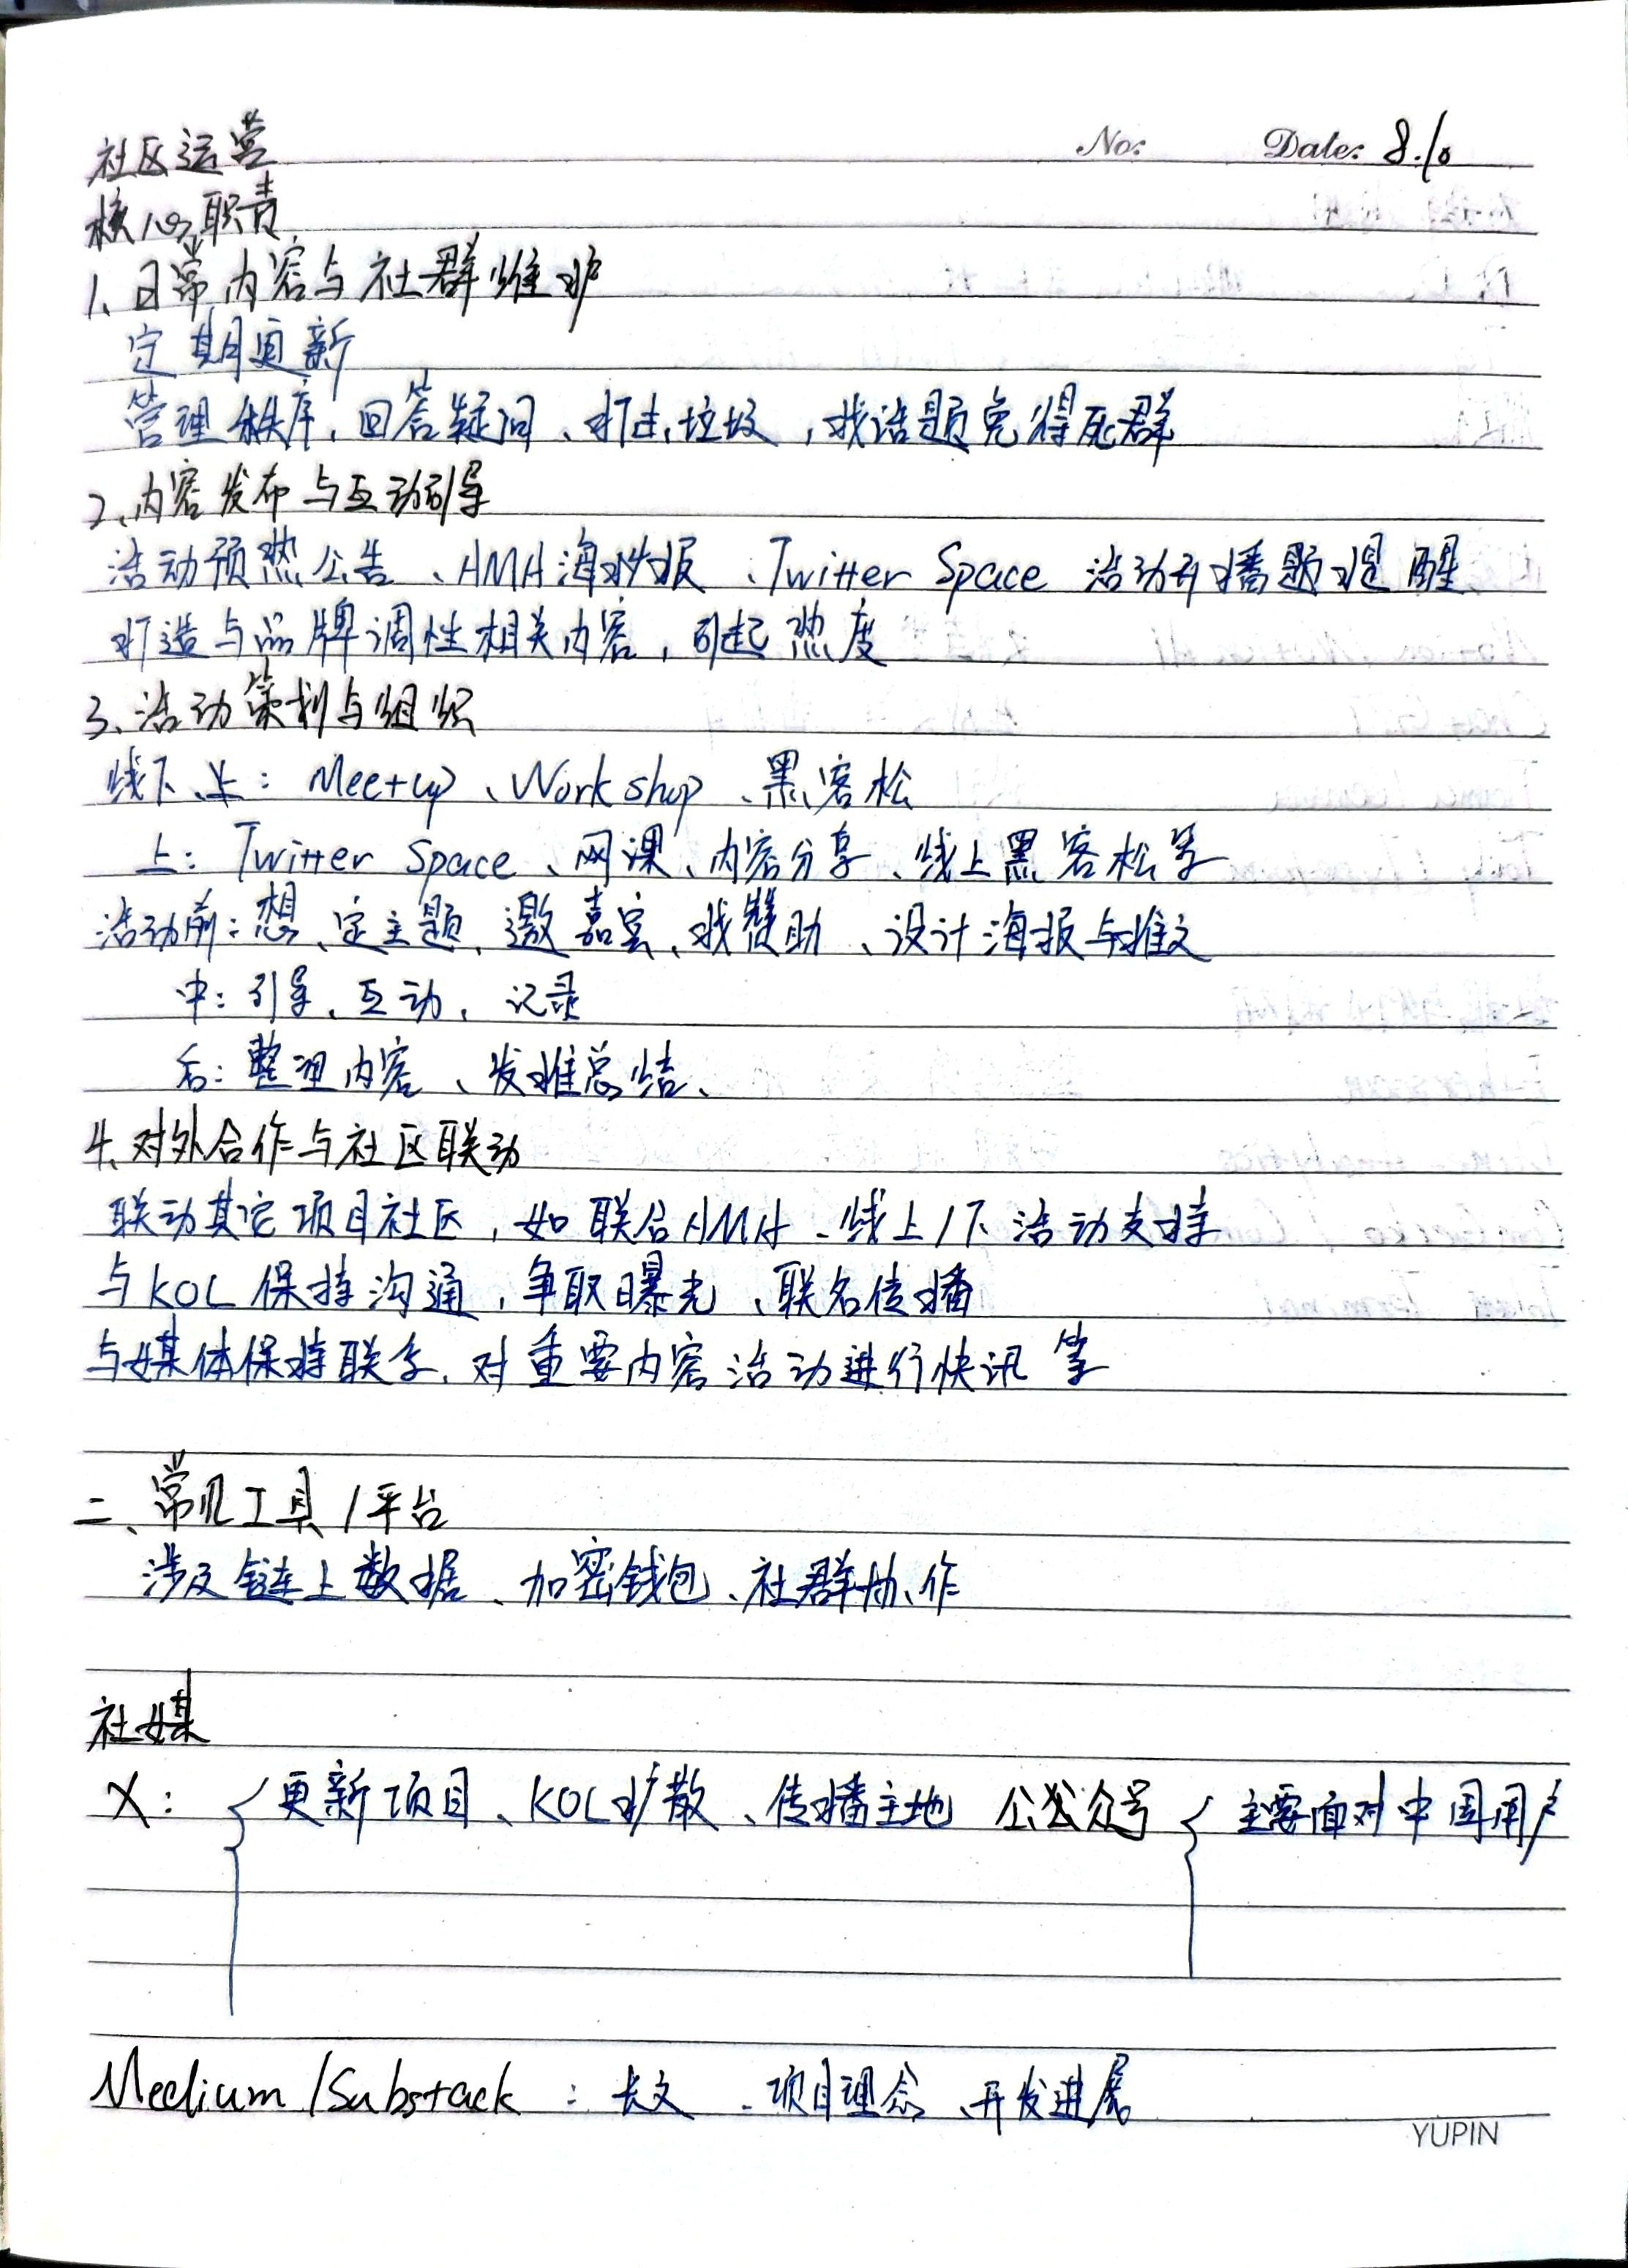 No: Date: 8.10
社区运营
核心职责
1、日常内容与社群维护
定期更新
管理秩序，回答疑问、打击垃圾，找话题免得死群
2、内容发布与互动引导
活动预热公告、AMA海报、Twitter Space 活动开播题提醒
打造与品牌调性相关内容，引起热度
3、活动策划与组织
线下、: Meetup、Workshop、黑客松
上: Twitter Space、网课、内容分享、线上黑客松等
活动前：想、定主题、邀嘉宾、找赞助、设计海报与推文
中：引导、互动，记录
后：整理内容、发推总结、
4、对外合作与社区联动
联动其它项目社区，如联合AMA、线上/下活动支持
与KOL保持沟通，争取曝光、联名传播
与媒体保持联系，对重要内容活动进行快讯等
二、常见工具/平台
涉及链上数据、加密钱包、社群协作
社媒
X: { 更新项目、KOL扩散、传播主地 公众号 { 主要面对中国用户
Medium/Substack : 长文、项目理念、开发进展
YUPIN